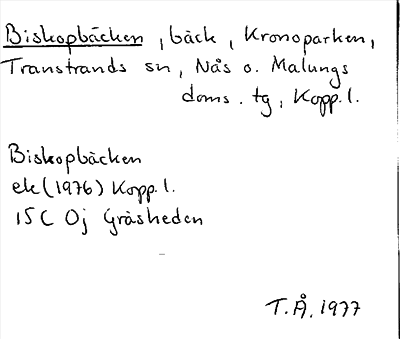 Biskopbäcken, bäck, Kronoparken,
Transtrands sn, Nås o. Malungs
doms. tg, Kopp. l.
Biskopbäcken
ek (1976) Kopp. l.
15C Oj Gräsheden
T.Å. 1977